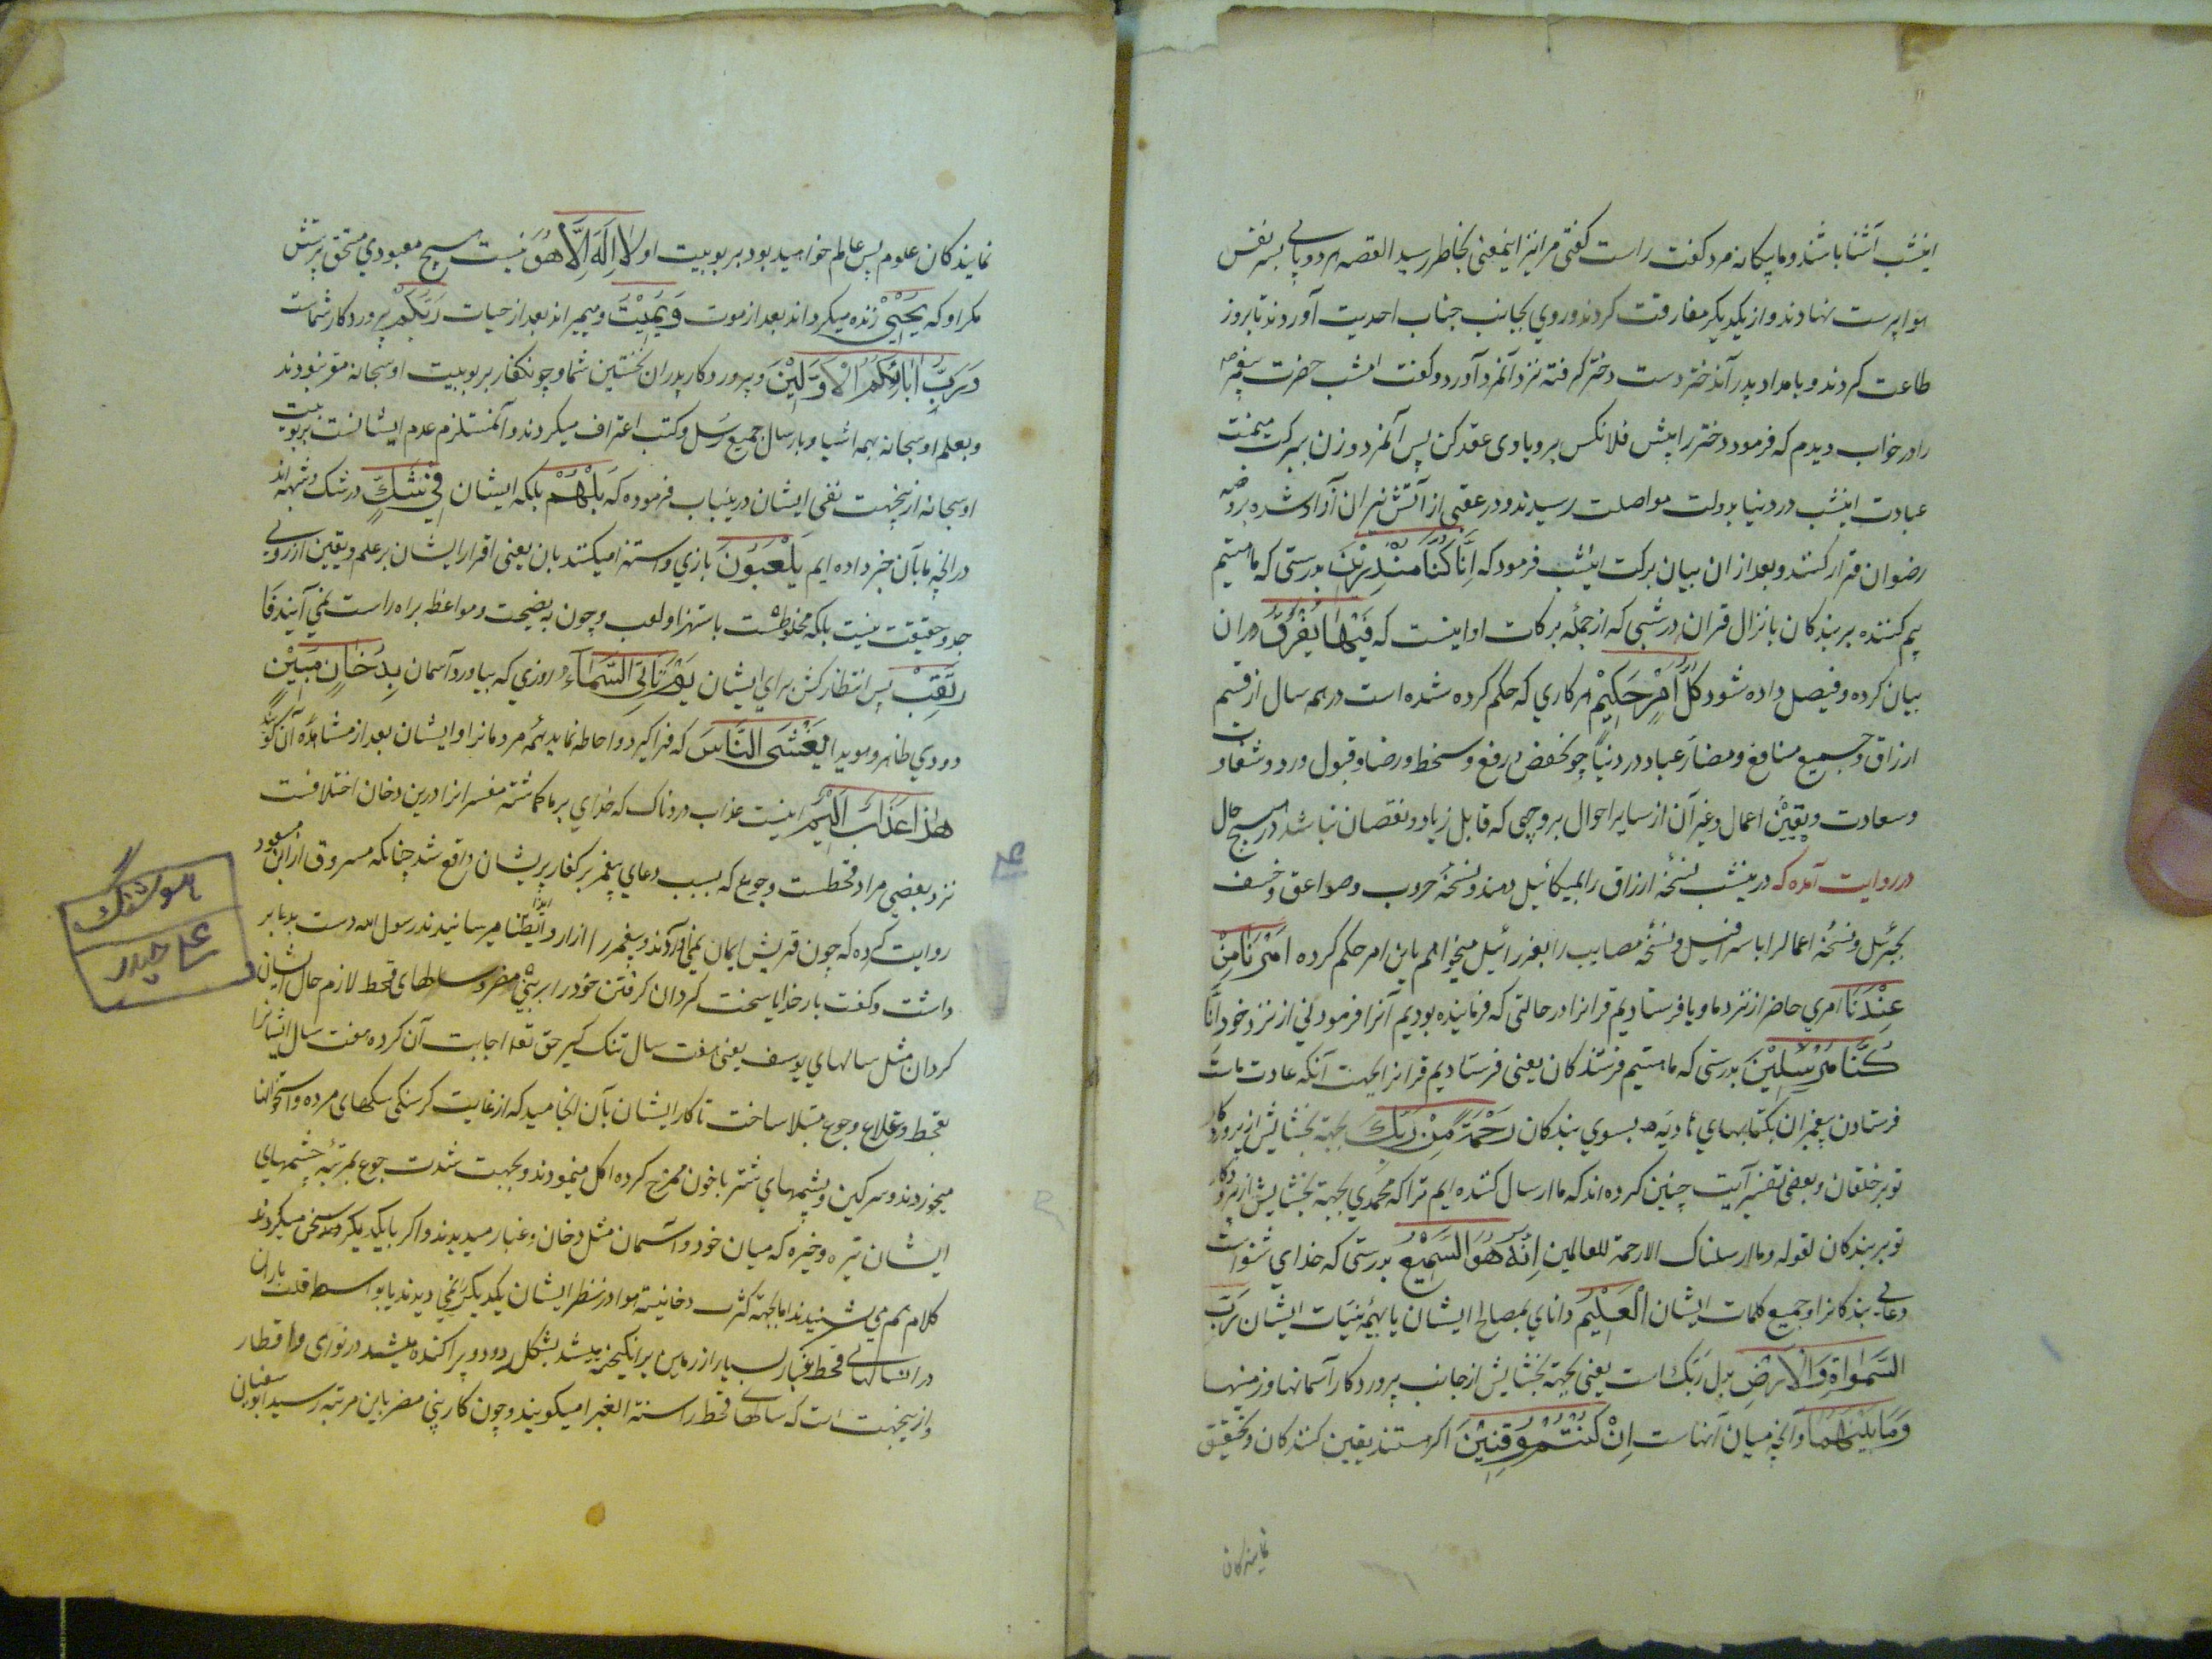 اینشب آشنا باشند و ما بیکانه مرد کفت راست کفتی مرا نیز اینمعنی بخاطر رسید القصه هر دو پای بسر نفس
هوا پرست نهادند و از یکدیکر مفارقت کردند و روی بجانب جناب احدیت آوردند تا بروز
طاعت کردند و بامداد پدر آندختر دست دختر کرفته نزد آنمرد آورد و کفت امشب حضرت پیغمبر
را در خواب دیدم که فرمود دختر را پیش فلانکس برو با وی عقد کن پس آنمرد و زن ببرکت میمنت
عبادت اینشب در دنیا بدولت مواصلت رسیدند و در عقبی از آتش نیران آزاد شده بروضه
رضوان قرار کنند و بعد از ان بیان برکت اینشب فرمود که اِنَّا کُنَّا مُنْذِرِیْنَ بدرستی که ما هستیم
بیم کننده بر بندکان بانزال قران در شبی که از جمله برکات او اینست که فِیْهَا یُفْرَقُ در ان
بیان کرده و فیصل داده شود کُلُّ اَمْرٍ حَکِیْمٍ هر کاری که حکم کرده شده است در همه سال از قسم
ارزاق و جمیع منافع و مضار عباد در دنیا چو خفض و رفع و سخط و رضا و قبول و رد و شقاوت
و سعادت و تعیّن اعمال و غیر آن از سایر احوال بر وجهی که قابل زیاد و نقصان نباشد در هیچ حال
در روایت آمده که درینشب نسخهٔ ارزاق را بمیکائیل دهند و نسخهٔ حروب و صواعق و خسف
بجبرئیل و نسخهٔ اعمال را باسرافیل و نسخهٔ مصایب را بعزرائیل میخواهم باین امر حکم کرده اَمْرًا مِنْ
عِنْدِنَا امری حاضر از نزد ما و یا فرستادیم قرانرا در حالتی که فرماینده بودیم آنرا فرمودنی از نزد خود اِنَّا
کُنَّا مُرْسِلِیْنَ بدرستی که ما هستیم فرستندکان یعنی فرستادیم قرانرا بجهت آنکه عادت ماست
فرستادن پیغمبران بکتابهای بسوی بندکان رَحْمَةً مِنْ رَبِّکَ بجهته بخشایش از پروردکار
تو بر خلقان و بعضی تفسیر آیت چنین کرده اند که ما ارسال کننده ایم ترا که محمدی بجهته بخشایش از پروردکار
تو بر بندکان لقوله و ما ارسلناک الا رحمة للعالمین اِنَّهُ هُوَ السَّمِیْعُ بدرستی که خدای شنواست
دعای بندکانرا و جمیع کلمات ایشان الْعَلِیْمُ دانای بمصالح ایشان یا بهمهٔ نیّات ایشان رَبِّ
السَّمٰوٰاةِ وَالْاَرْضِ بدل ربّک است یعنی بجهته بخشایش از جانب پروردکار آسمانها و زمینها
وَمَا بَیْنَهُمَا و آنچه میان آنهاست اِنْ کُنْتُمْ مُوْقِنِیْنَ اکر هستید یقین کنندکان و تحقیق
نمایندکان
نمایندکان علوم پس عالم خواهید بود بربوبیت او لَا اِلٰهَ اِلَّا هُوَ نیست هیچ معبودی مستحق پرستش
مکر او که یُحْیِیْ زنده میکرداند بعد از موت وَیُمِیْتُ و میمیراند بعد از حیات رَبُّکُمْ پروردکار شماست
وَرَبُّ اٰبَائِکُمُ الْاَوَّلِیْنَ و پروردکار پدران نخستین شما و چونکفار بربوبیت او سبحانه مقر نبودند
و بعلم او سبحانه بهمه اشیا و بارسال جمیع رسل و کتب اعتراف میکردند و آنمستلزم عدم ایشانست بربوبیت
او سبحانه ازینجهت نفی ایشان درینباب فرموده که بَلْ هُمْ بلکه ایشان فِیْ شَکٍّ در شک و شبهه اند
در آنچه ما بآن خبر داده ایم یَلْعَبُوْنَ بازی و استهزا میکنند بان یعنی اقرار ایشان بر علم و یقین از روی
جد و حقیقت نیست بلکه مخلوطست باستهزا و لعب و چون بنصیحت و مواعظه براه راست نمی آیند فَا
رْتَقِبْ پس انتظار کش برای ایشان یَوْمَ تَاْتِی السَّمَآءُ روزی که بیاورد آسمان بِدُخَانٍ مُبِیْنٍ
دودی ظاهر و هویدا یَغْشَی النَّاسَ که فرا کیرد و احاطه نماید همهٔ مردمانرا و ایشان بعد از مشاهدهٔ آن کویند
هٰذَا عَذَابٌ اَلِیْمٌ اینست عذاب دردناک که خدای بر ما کماشته مفسرانرا درین دخان اختلافست
نزد بعضی مراد قحطست و جوع که بسبب دعای پیغمبر بر کفار پریشان واقع شد چنانکه مسروق از ابن مسعود
روایت کرده که چون قریش ایمان نمی آوردند و پیغمبر را آزار و ایذا میرسانیدند رسول الله دست بدعا بر
داشت و کفت بار خدایا سخت کردان کرفتن خود را بر بنی مضر و سالهای قحط لازم حال ایشان
کردان مثل سالهای یوسف یعنی هفت سال تنک کیر حق تعا اجابت آن کرده هفت سال ایشانرا
بقحط و غلا و جوع مبتلا ساخت تا کار ایشان بآن انجامید که از غایت کرسنکی سکهای مرده و استخوانها
میخوردند و سرکین و پشمهای شتر با خون ممزوج کرده اکل مینمودند و بجهت شدت جوع بمرتبه چشمهای
ایشان تیره و خیره که میان خود و آسمان مثل دخان و غبار میدیدند و اکر با یکدیکر سخن میکردند
کلام هم می شنیدند اما بجهته کثرت دخانیت هوا در نظر ایشان یکدیکر نمی دیدند یا بواسطه قلت باران
در انسالهای قحط غبار بسیار از زمین برانکیخته میشد بشکل دود و پراکنده میشد در نواحی و اقطار
و ازینجهت است که سالهای قحط را سنة الغبرا میکویند و چون کار بنی مضر باین مرتبه رسید ابوسفیان
ہوشنگ
علی حیدر